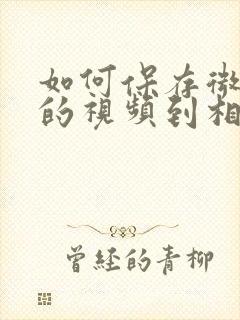 如何保存微
的視頻到相
曾經的青柳